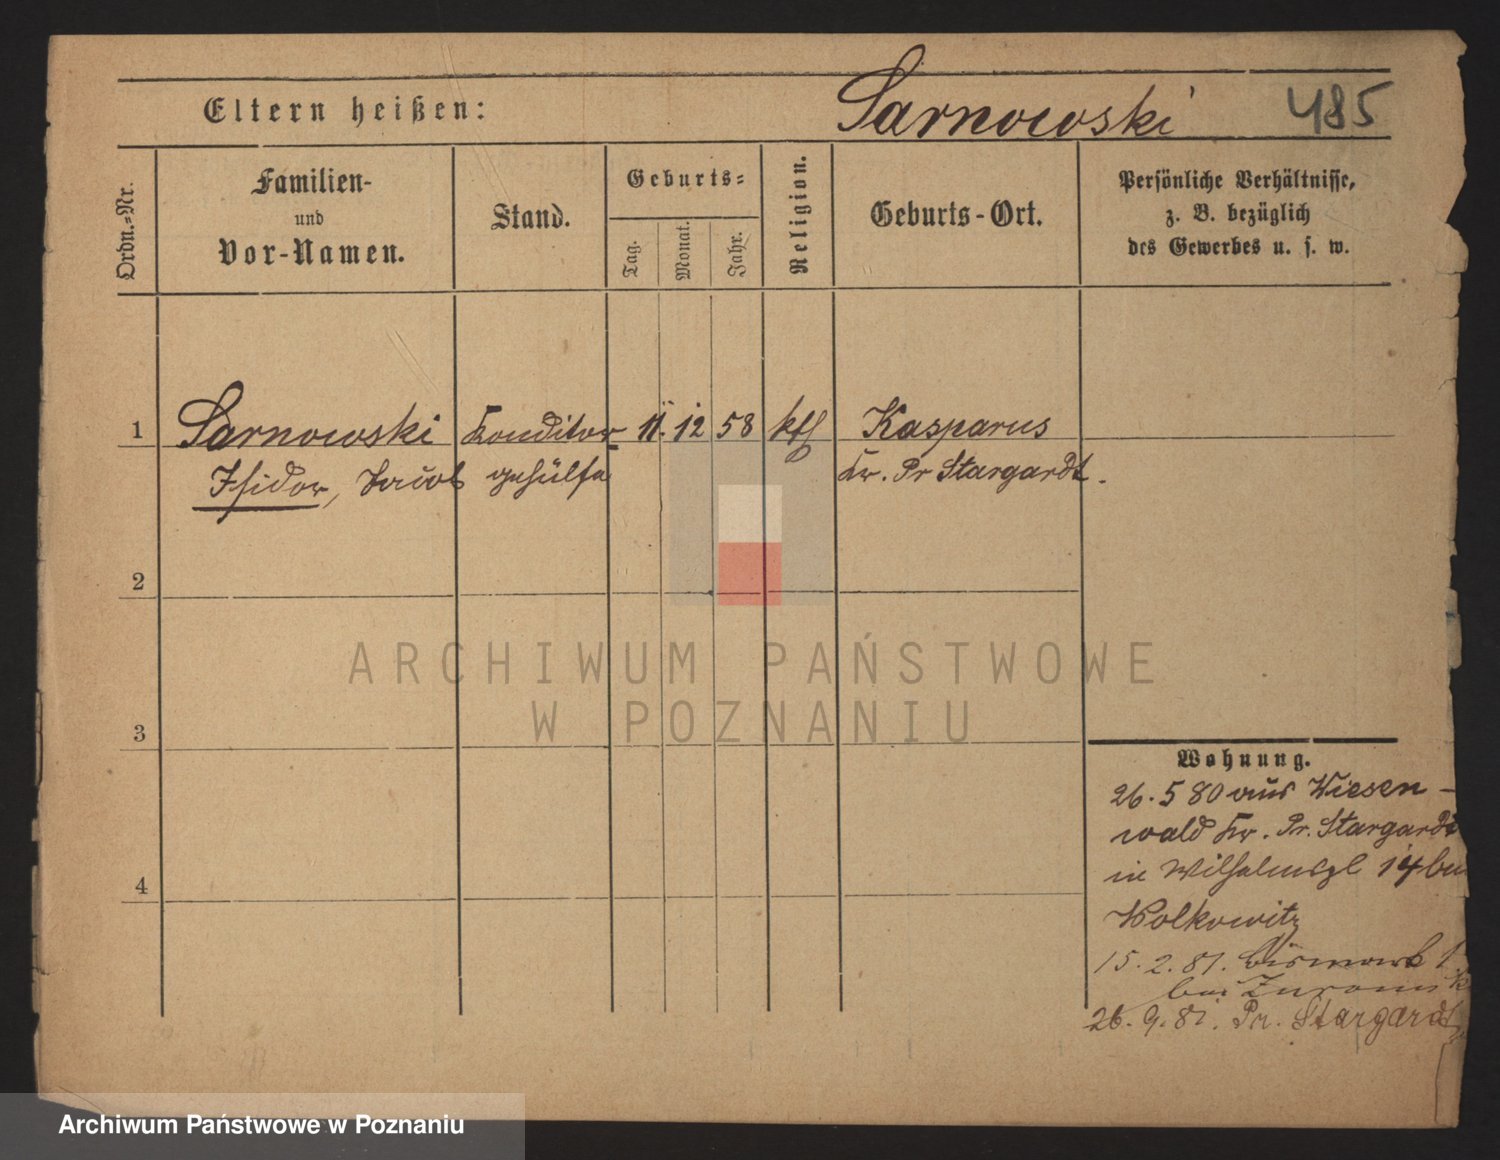 Eltern heißen: Sarnowski 485
Ordn.-Nr.
Familien-
und
Vor-Namen.
Stand.
Geburts-
Tag.
Monat.
Jahr.
Religion.
Geburts-Ort.
Persönliche Verhältnisse,
z. B. bezüglich
des Gewerbes u. s. w.
1 Sarnowski Konditor 11. 12 58 kth Kasparus
Isidor, Jacob gehülfe Kr. Pr Stargardt.
2
3
4
Wohnung.
26. 5 80 aus Wiesen-
wald Kr. Pr. Stargardt
in Wilhelmspl 14 bei
Wolkowitz
15. 2. 81. Bismark 1.
bei
26. 9. 81. Pr. Stargardt
ARCHIWUM PAŃSTWOWE
W POZNANIU
Archiwum Państwowe w Poznaniu